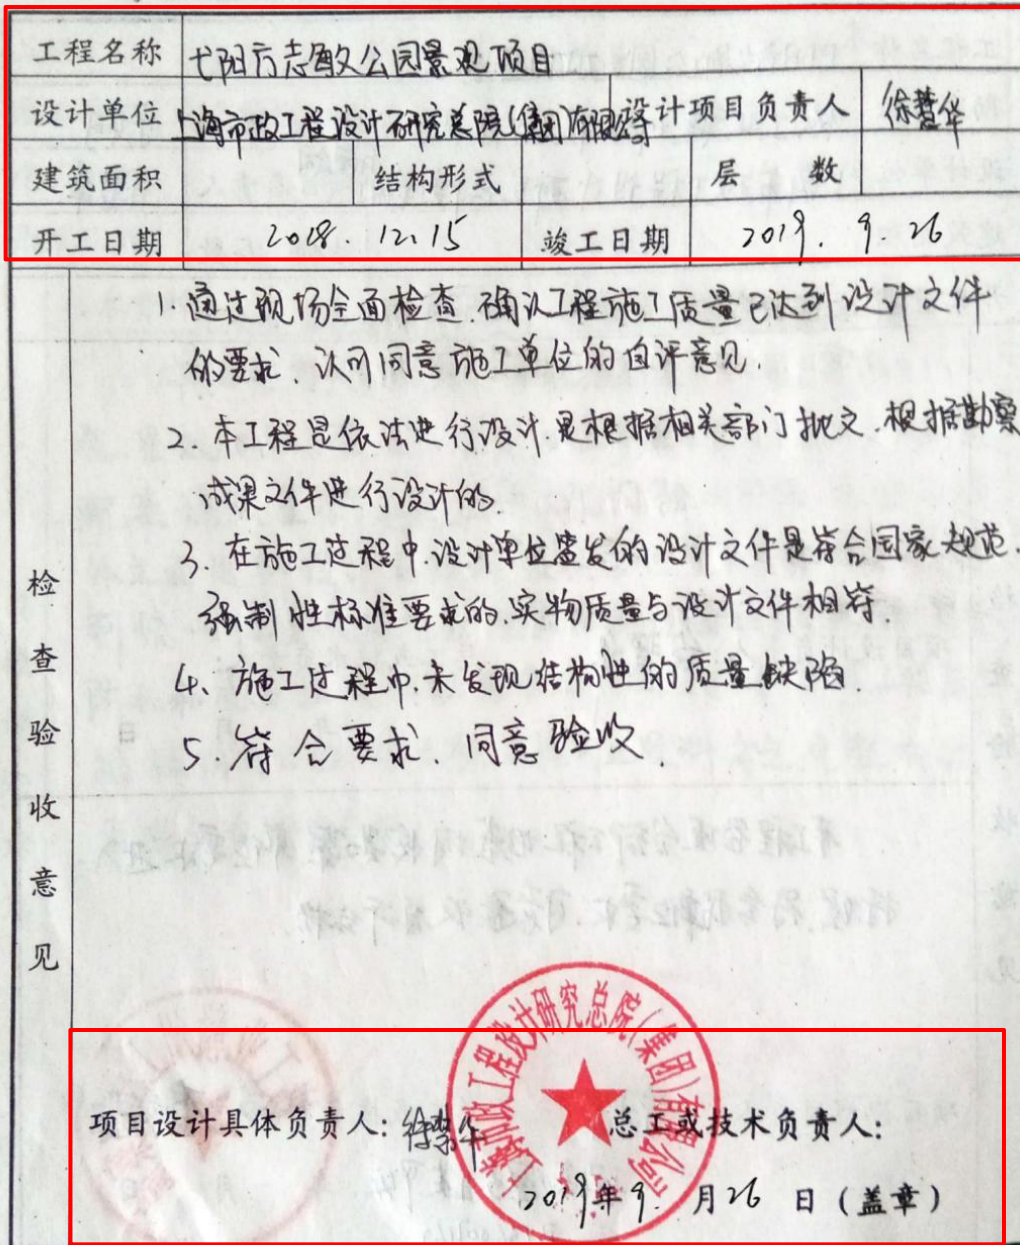 工程名称 弋阳方志敏公园景观项目
设计单位 上海市政工程设计研究总院(集团)有限公司 设计项目负责人 徐慧华
建筑面积 结构形式 层数
开工日期 2018.12.15 竣工日期 2019.9.26
检查验收意见
1.通过现场全面检查.确认工程施工质量已达到设计文件
的要求、认可同意施工单位的自评意见.
2.本工程是依法进行设计.是根据相关部门批文.根据勘察
成果文件进行设计的.
3.在施工过程中.设计单位签发的设计文件是符合国家规范、
强制性标准要求的.实物质量与设计文件相符.
4、施工过程中.未发现结构性的质量缺陷.
5.符合要求、同意验收.
上海市政工程设计研究总院(集团)有限公司
项目设计具体负责人:徐慧华 总工或技术负责人:
2019年9月26日(盖章)